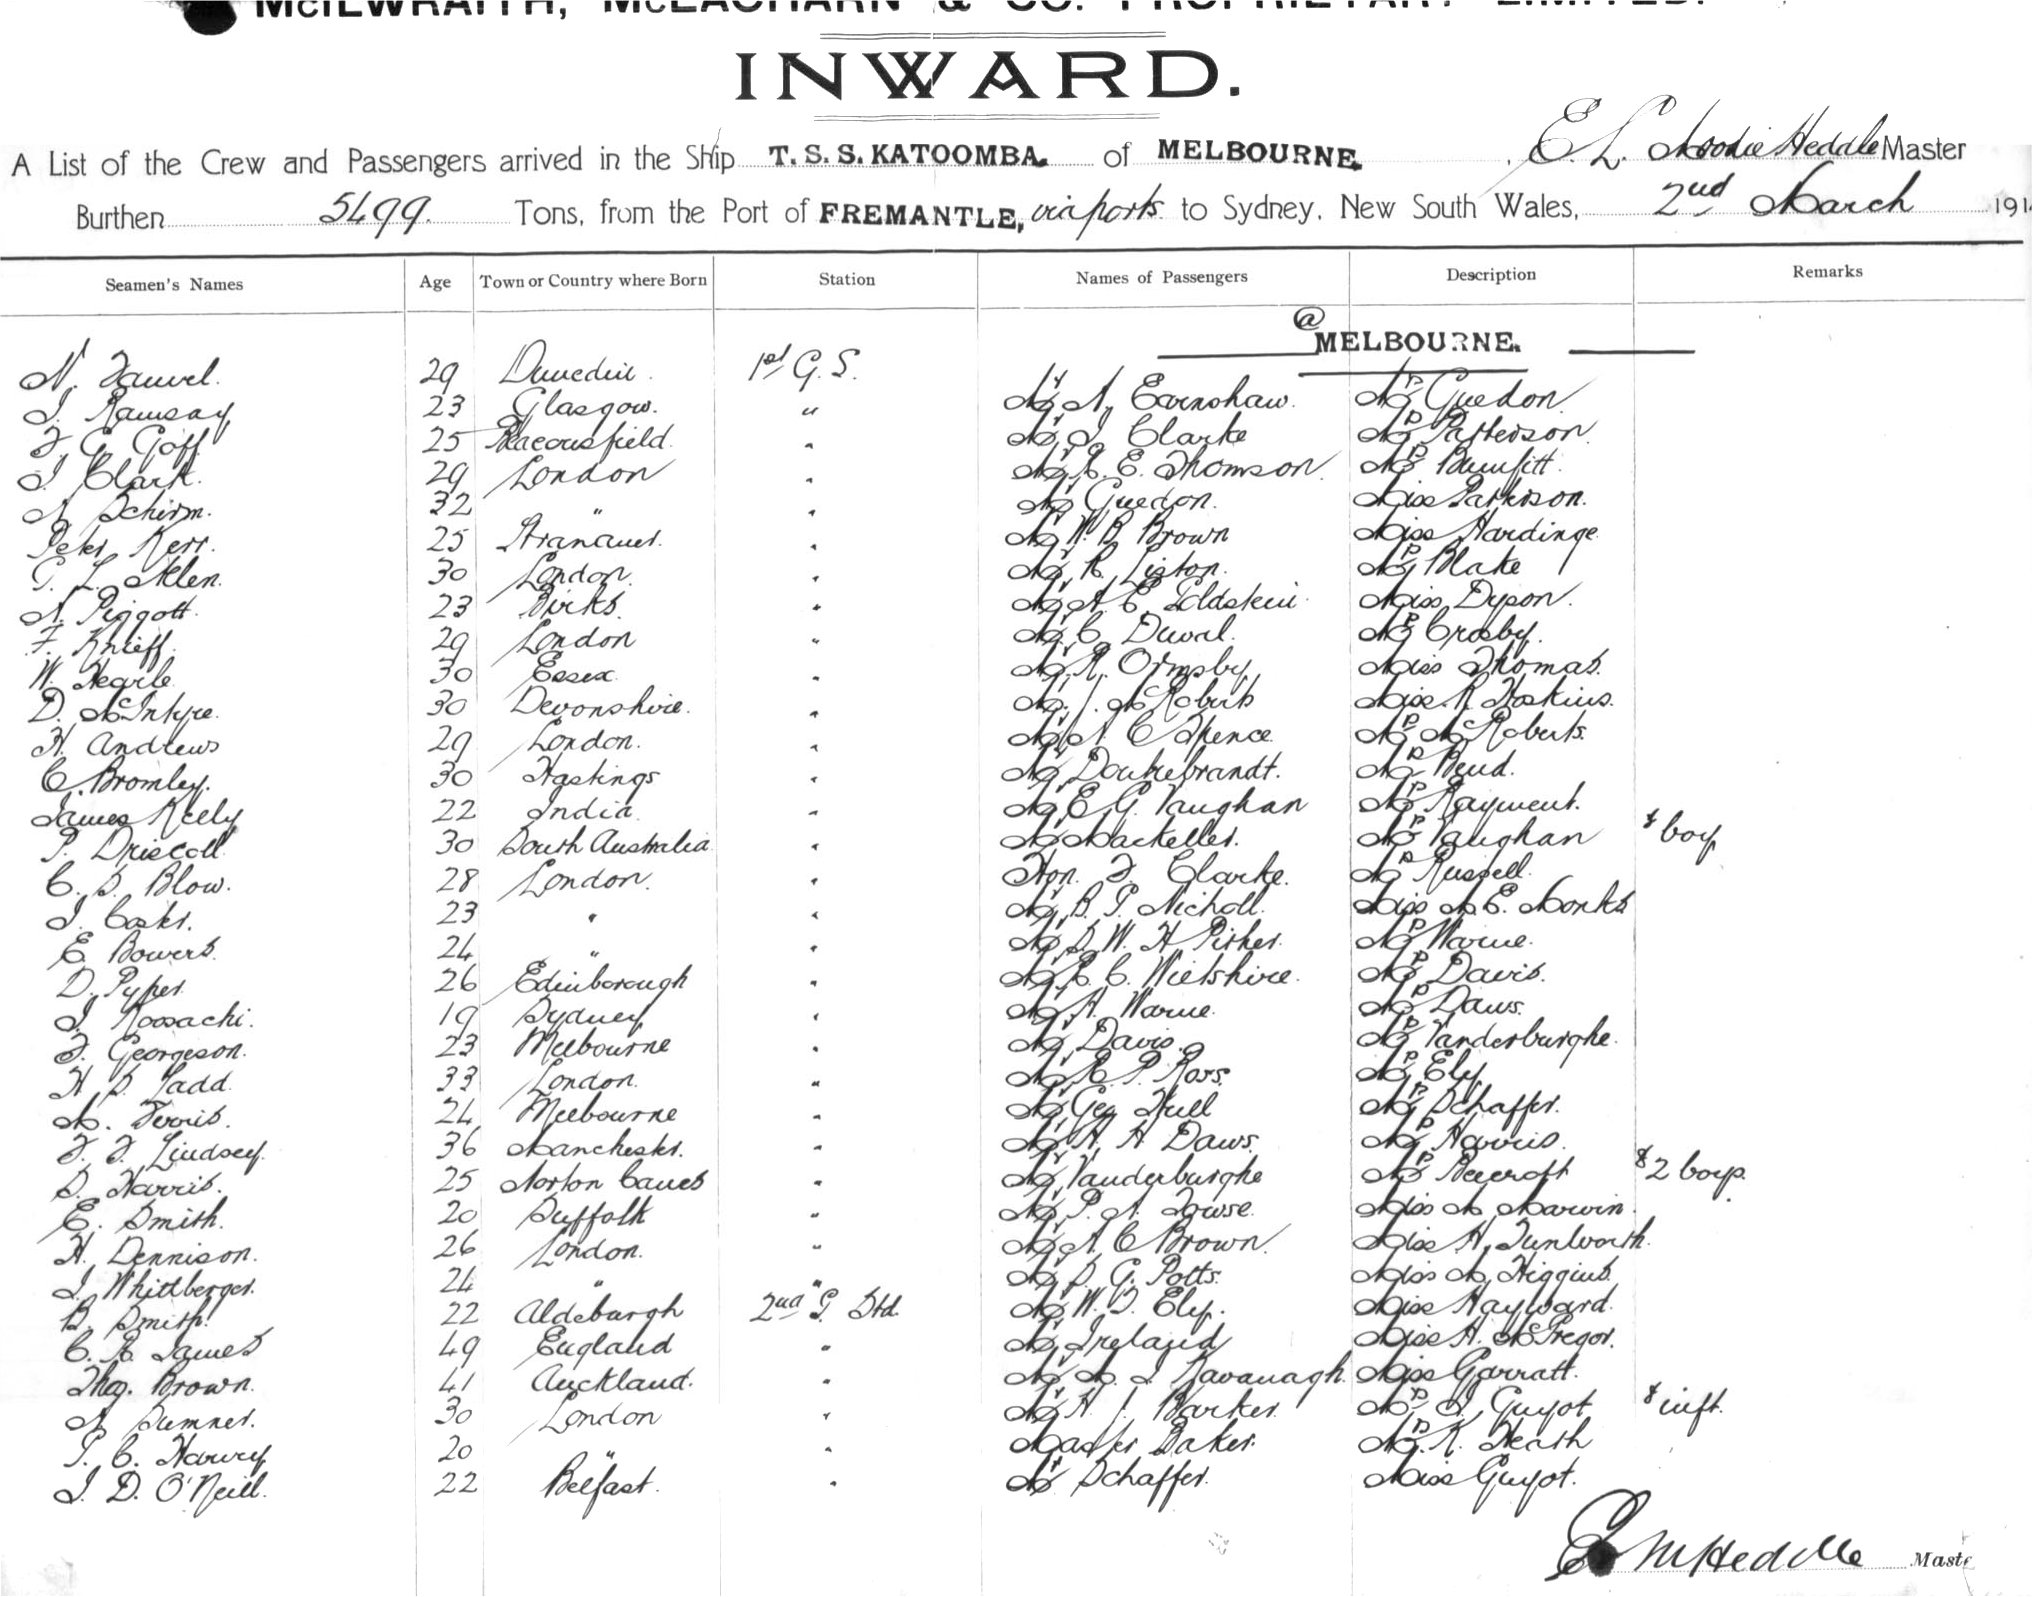 McILWRAITH, McEACHARN & CO. PROPRIETARY LIMITED.
INWARD.
A List of the Crew and Passengers arrived in the Ship T. S. S. KATOOMBA. of MELBOURNE. E. L. Moodie Heddle Master
Burthen 5499. Tons, from the Port of FREMANTLE, via ports to Sydney, New South Wales, 2nd March 191
Seamen's Names Age Town or Country where Born Station Names of Passengers Description Remarks
@ MELBOURNE.
N. Fauvel. 29 Dunedin. 1st G. S. Mr A. Earnshaw. Mrs Guedon
J. Ramsay 23 Glasgow. " Mr J. Clarke Mrs Patterson.
F. G. Goff 25 Beaconsfield. " Mr R. E. Thomson Mrs Bumfitt.
J. Clark. 29 London " Mr Guedon. Miss Patterson.
A. Schirm. 32 " " Mr W. B. Brown Miss Hardinge
Peter Kerr. 25 Stranauer. " Mr R. Liston. Mrs Blake
G. L. Allen. 30 London. " Mr A. E. Goldstein. Miss Dyson.
A. Piggott. 23 Birks. " Mr C. Duval. Mrs Crosby.
F. Knieff. 29 London " Mr R. Ormsby Miss Thomas.
W. Hearle 30 Essex. " Mr J. McRoberts Miss R. Hoskins.
D. McIntyre. 30 Devonshire. " Mr A. C. Spence Mrs McRoberts.
H. Andrews 29 London. " Mr Donkebrandt. Mrs Bend.
C. Bromley. 30 Hastings " Mr E. G. Vaughan Mrs Rayment.
James Kelly 22 India. " Mr Mackeller. Mrs Vaughan & boy
P. Driscoll 30 South Australia " Hon. F. Clarke. Mrs Russell.
C. S. Blow. 28 London. " Mr B. P. Nicholl. Miss M. E. Monks
J. Coster. 23 " " Mr S. W. H. Fisher. Mrs Warne.
E. Bowers. 24 " " Mr R. C. Wieltshire. Mrs Davis.
D. Pyper. 26 Edinborough " Mr A. Warne. Mrs Daws.
J. Rossachi. 19 Sydney " Mr Davis. Mrs Vanderburghe.
F. Georgeson. 23 Melbourne " Mr R. P. Ross. Mrs Ely
H. S. Ladd. 33 London. " Mr Geo Hull Mrs Schaffer.
M. Ferris. 24 Melbourne " Mr A. H. Daws. Mrs Harris.
F. F. Lindsey. 36 Manchester. " Mr Vanderburghe Mrs Beecroft & 2 boys.
S. Harris. 25 Norton Canes " Mr P. A. Dowse. Miss M. Marvin
E. Smith. 20 Suffolk " Mr A. C. Brown. Miss H. Tunlworth.
H. Dennison. 26 London. " Mr S. G. Potts. Miss M. Higgins.
J. Whittberger. 24 " " Mr W. J. Ely. Miss Hayward.
B. Smith. 22 Aldeburgh 2nd G. Std. Mr Ireland Miss H. McGregor.
C. R. James 49 England " Mr M. J. Kavanagh Miss Garratt.
Thos. Brown. 41 Auckland. " Mr H. J. Barker. Mrs J. Guyot & inft.
A. Sumner. 30 London " Master Baker. Mrs K. Heath
P. C. Harvey 20 " " Mr Schaffer. Miss Guyot.
J. D. O'Neill. 22 Belfast. "
E L M Heddle Maste